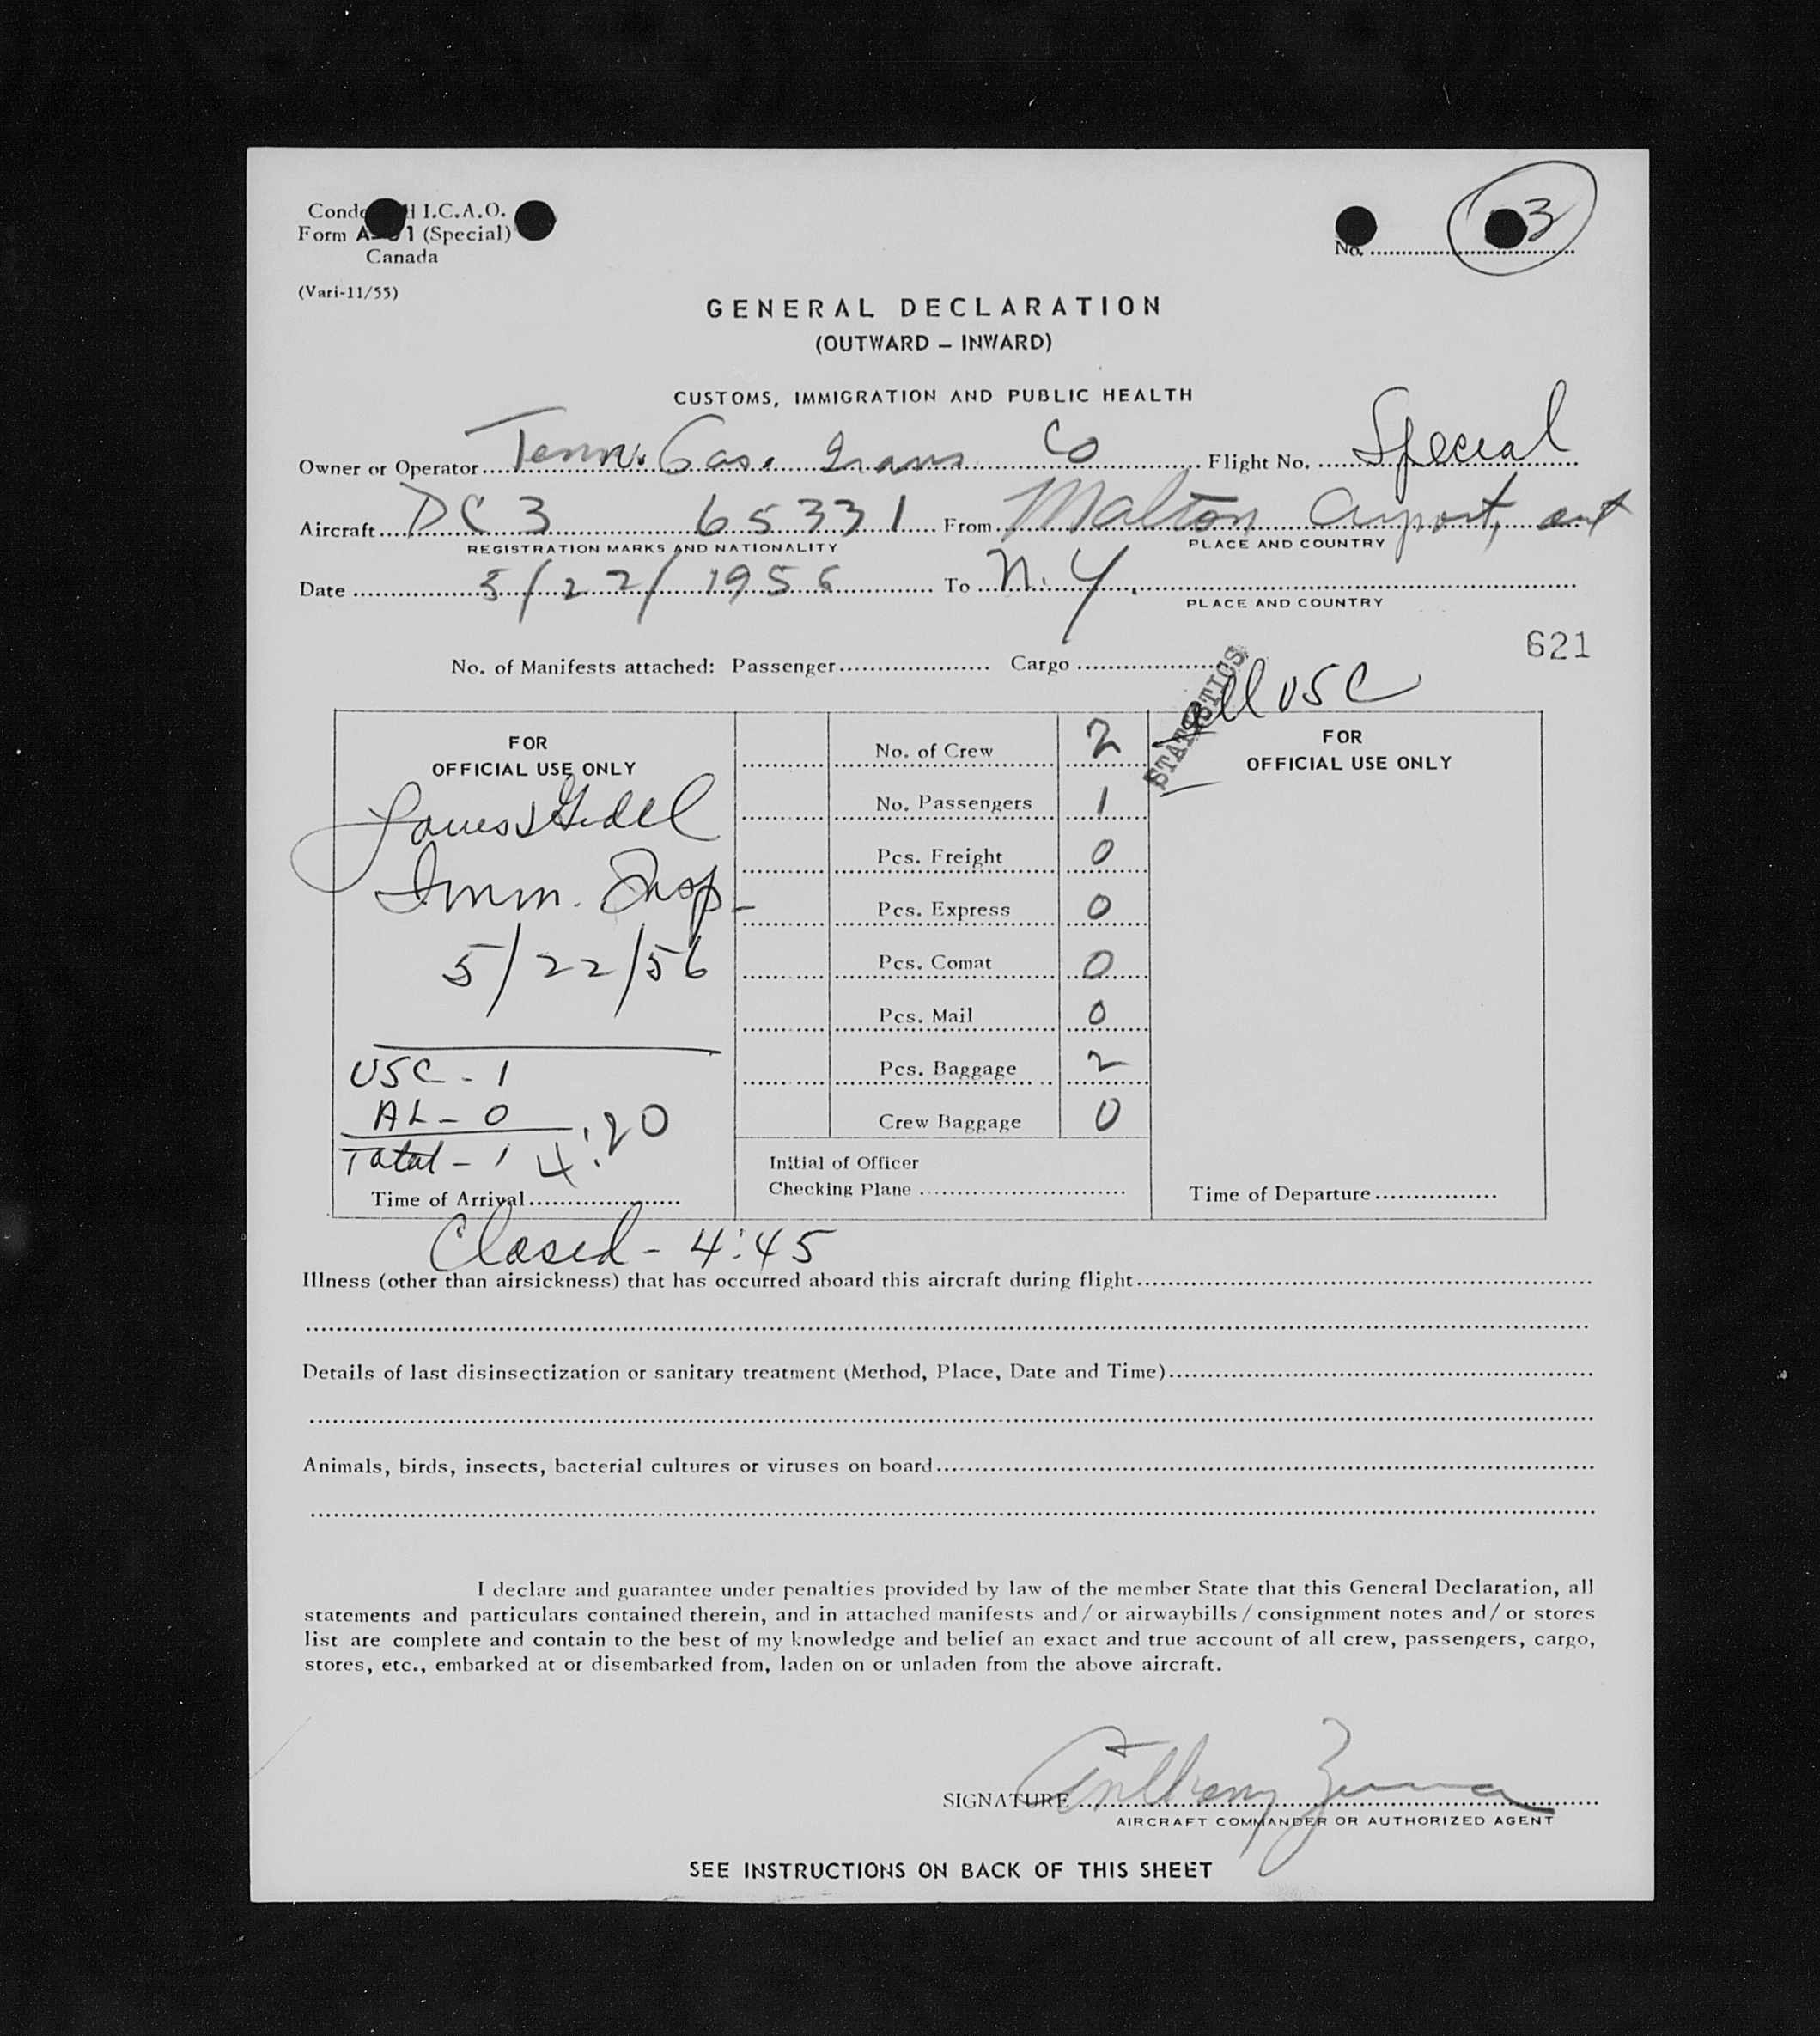 I.C.A.O.
Form (Special)
Canada
(Vari-11/55)
No. 3
GENERAL DECLARATION
(OUTWARD – INWARD)
CUSTOMS, IMMIGRATION AND PUBLIC HEALTH
Owner or Operator Tenn. Gas. Trans Co Flight No. Special
Aircraft DC 3 65331 From Malton Airport, ont
REGISTRATION MARKS AND NATIONALITY PLACE AND COUNTRY
Date 5/22/1956 To N.Y.
PLACE AND COUNTRY
621
No. of Manifests attached: Passenger Cargo
STATISTICS
all USC
FOR
OFFICIAL USE ONLY
Imm. Insp
5/22/56
USC - 1
AL - 0
Total - 1 4:20
Time of Arrival
Closed - 4:45
No. of Crew 2
No. Passengers 1
Pcs. Freight 0
Pcs. Express 0
Pcs. Comat 0
Pcs. Mail 0
Pcs. Baggage 2
Crew Baggage 0
Initial of Officer
Checking Plane
FOR
OFFICIAL USE ONLY
Time of Departure
Illness (other than airsickness) that has occurred aboard this aircraft during flight
Details of last disinsectization or sanitary treatment (Method, Place, Date and Time)
Animals, birds, insects, bacterial cultures or viruses on board
I declare and guarantee under penalties provided by law of the member State that this General Declaration, all
statements and particulars contained therein, and in attached manifests and/or airwaybills/consignment notes and/or stores
list are complete and contain to the best of my knowledge and belief an exact and true account of all crew, passengers, cargo,
stores, etc., embarked at or disembarked from, laden on or unladen from the above aircraft.
SIGNATURE Anthony
AIRCRAFT COMMANDER OR AUTHORIZED AGENT
SEE INSTRUCTIONS ON BACK OF THIS SHEET